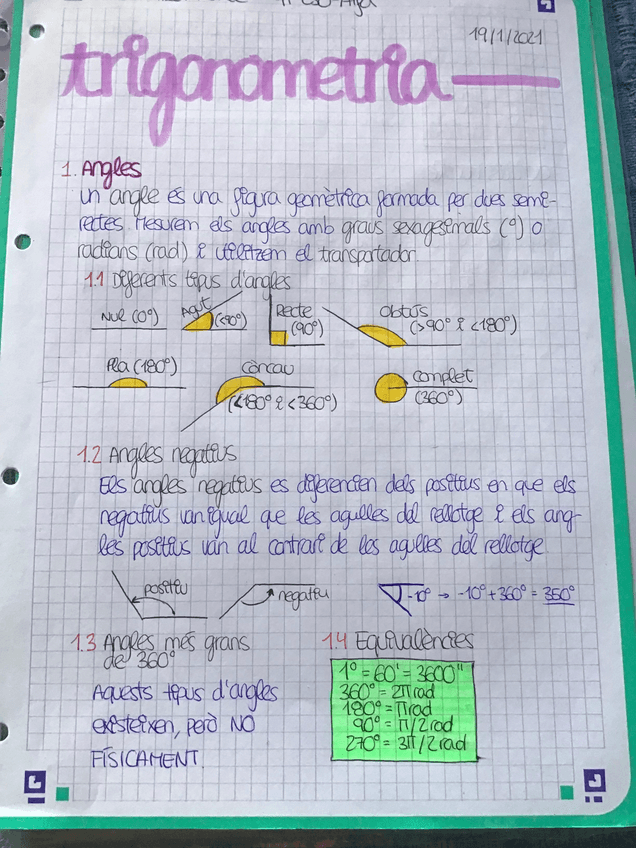 19/1/2021
trigonometria
1. Angles
un angle és una figura geomètrica formada per dues semi-
rectes. Mesurem els angles amb graus sexagesimals (º) o
radians (rad) i utilitzem el transportador.
1.1 Diferents tipus d'angles
Nul (0º)
Agut
(<90º)
Recte
(90º)
Obtús
(>90º i <180º)
Pla (180º)
còncau
(<180º i <360º)
complet
(360º)
1.2 Angles negatius
Els angles negatius es diferencien dels positius en que els
negatius van igual que les agulles del rellotge i els ang-
les positius van al contrari de les agulles del rellotge
positiu
negatiu
-10º → -10º+360º = 350º
1.3 Angles més grans
de 360º
Aquests tipus d'angles
existeixen, però NO
FÍSICAMENT.
1.4 Equivalències
1º = 60' = 3600''
360º = 2π rad
180º = π rad
90º = π/2 rad
270º = 3π/2 rad